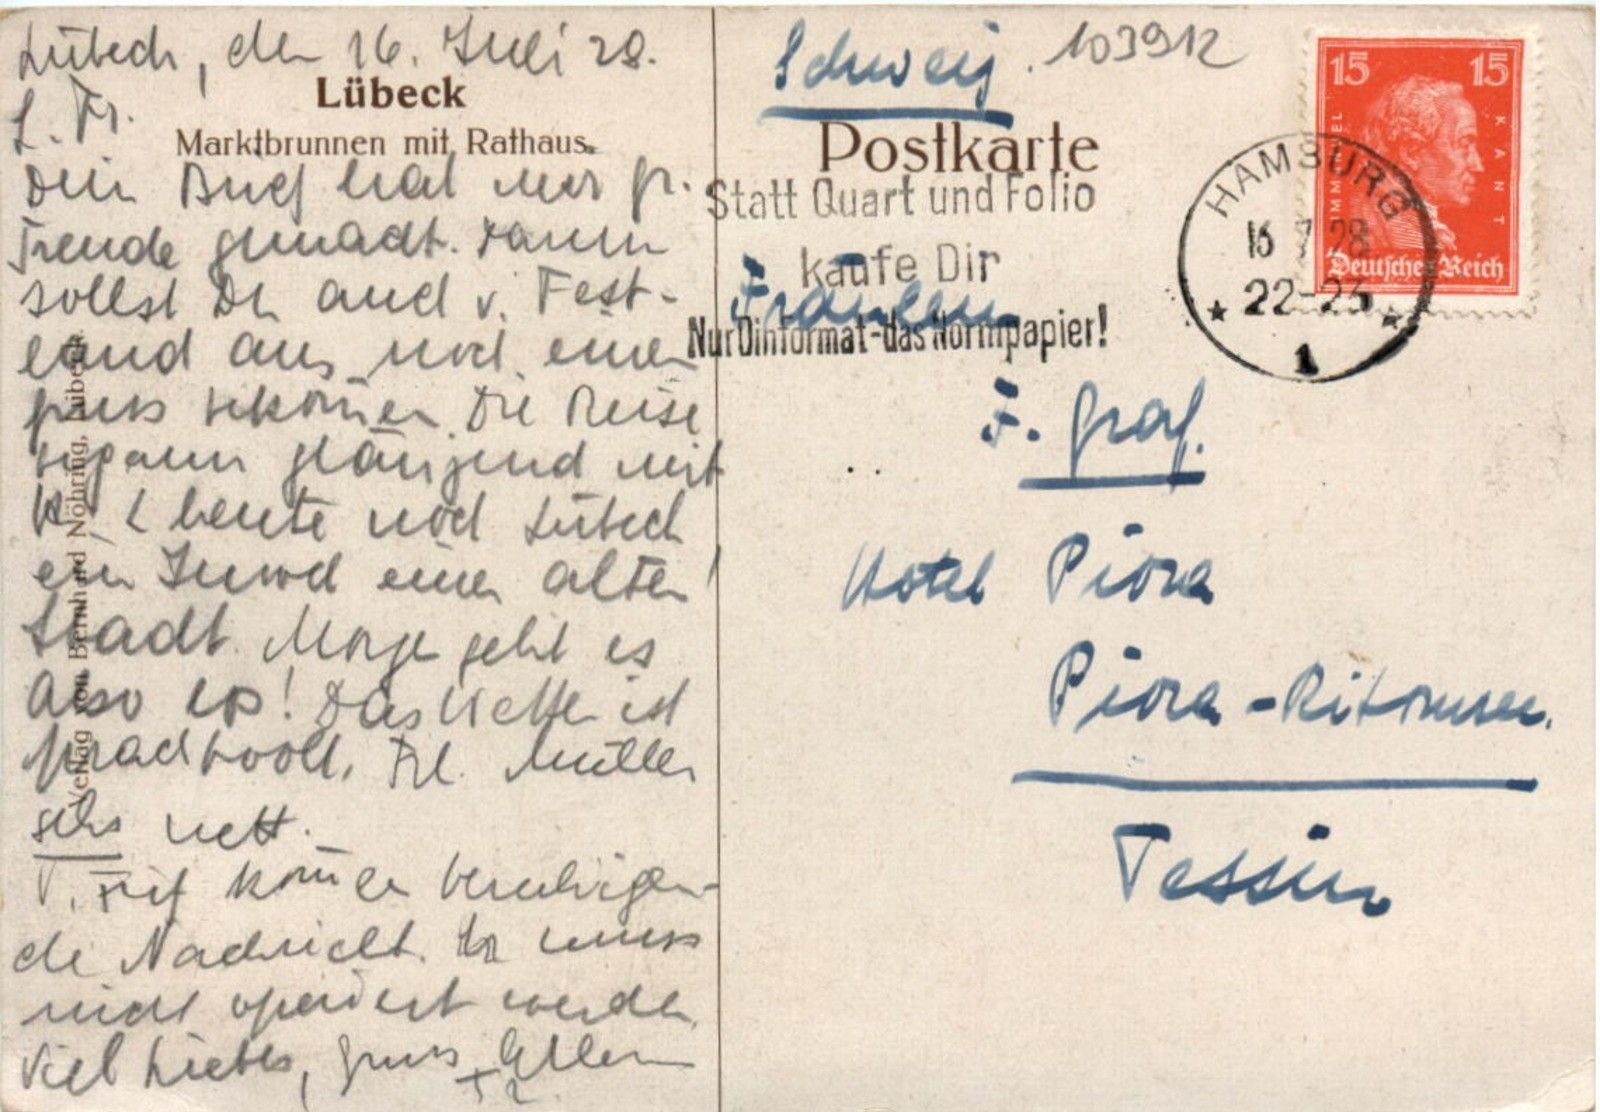 Lübeck, den 16. Juli 28.
Lübeck
Marktbrunnen mit Rathaus.
L. Fr.
Dein Brief hat mir gr.
Freude gemacht. Darum
sollst Du auch v. Fest-
land aus noch einen
Gruss bekom̅en. Die Reise
begann glänzend mit
heute noch Lübeck
ein Juwel einer alten
Stadt. Morge geht es
also los! Das Wetter ist
prachtvoll. Frl. Müller
sehr nett.
T. kom̅en beruhigen-
de Nachricht. Er muss
nicht operiert werden.
Viel Liebes, Gruss +
Verlag von Bernhard Nöhring, Lübeck.
Schweiz. 103912
Postkarte
Statt Quart und Folio
kaufe Dir
Nur Dinformat-das Normpapier!
Fräulein
F. Graf.
Hotel Piora
Piora-Ritomsee.
Tessin
15 15
IMMANUEL KANT
Deutsches Reich
HAMBURG
16.7.28
22-23
* 1 *